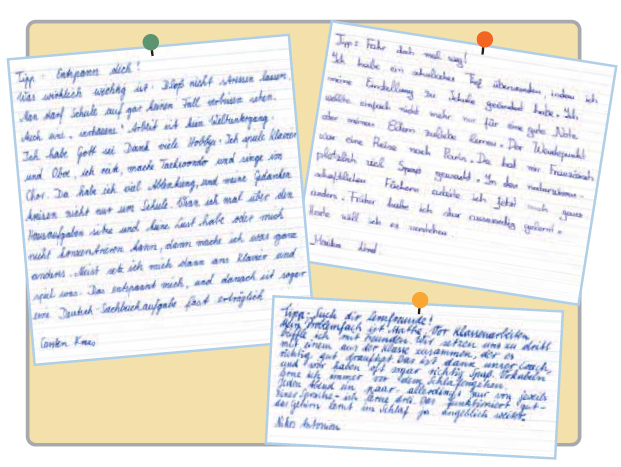 Tipp: Entspann dich!
Was wirklich wichtig ist: Bloß nicht stressen lassen.
Man darf Schule auf gar keinen Fall verbissen sehen.
Auch eine verhauene Arbeit ist kein Weltuntergang.
Ich habe Gott sei Dank viele Hobbys: Ich spiele Klavier
und Oboe, ich reite, mache Taekwondo und singe im
Chor. Da habe ich viel Ablenkung, und meine Gedanken
kreisen nicht nur um Schule. Wenn ich mal über den
Hausaufgaben sitze und keine Lust habe oder mich
nicht konzentrieren kann, dann mache ich was ganz
anderes. Meist setze ich mich dann ans Klavier und
spiel was. Das entspannt mich, und danach ist sogar
eine Deutsch-Sachbuchaufgabe fast erträglich
Carsten
Tipp: Fahr doch mal weg!
Ich habe ein schulisches Tief überwunden, indem ich
meine Einstellung zur Schule geändert habe. Ich
wollte einfach nicht mehr nur für eine gute Note
oder meinen Eltern zuliebe lernen. Der Wendepunkt
war eine Reise nach Paris. Da hat mir Französisch
plötzlich viel Spaß gemacht. In den naturwissen-
schaftlichen Fächern arbeite ich jetzt auch ganz
anders. Früher habe ich stur auswendig gelernt.
Heute will ich es verstehen.
Tipp: Such dir Lernfreunde!
Mein Problemfach ist Mathe. Vor Klassenarbeiten
büffle ich mit Freunden. Wir setzen uns zu dritt
mit einem aus der Klasse zusammen, der es
richtig gut draufhat. Das ist dann unser Coach,
und wir haben oft sogar richtig Spaß. Vokabeln
lerne ich immer vor dem Schlafengehen.
Jeden Abend ein paar – allerdings nur von jeweils
einer Sprache – ich lerne drei. Das funktioniert gut –
das Gehirn lernt im Schlaf ja angeblich weiter.